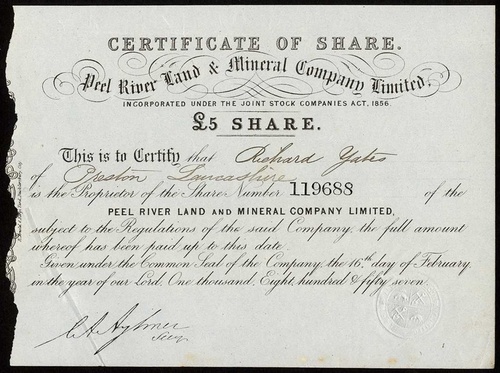 CERTIFICATE OF SHARE.
Peel River Land & Mineral Company Limited.
INCORPORATED UNDER THE JOINT STOCK COMPANIES ACT, 1856.
£5 SHARE.
This is to Certify that Richard Yates
of Preston Lancashire
is the Proprietor of the Share Number 119688 of the
PEEL RIVER LAND AND MINERAL COMPANY LIMITED,
subject to the Regulations of the said Company, the full amount
whereof has been paid up to this date.
Given under the Common Seal of the Company, the 16th day of February,
in the year of our Lord, One thousand, Eight, hundred & fifty seven.
Secy.